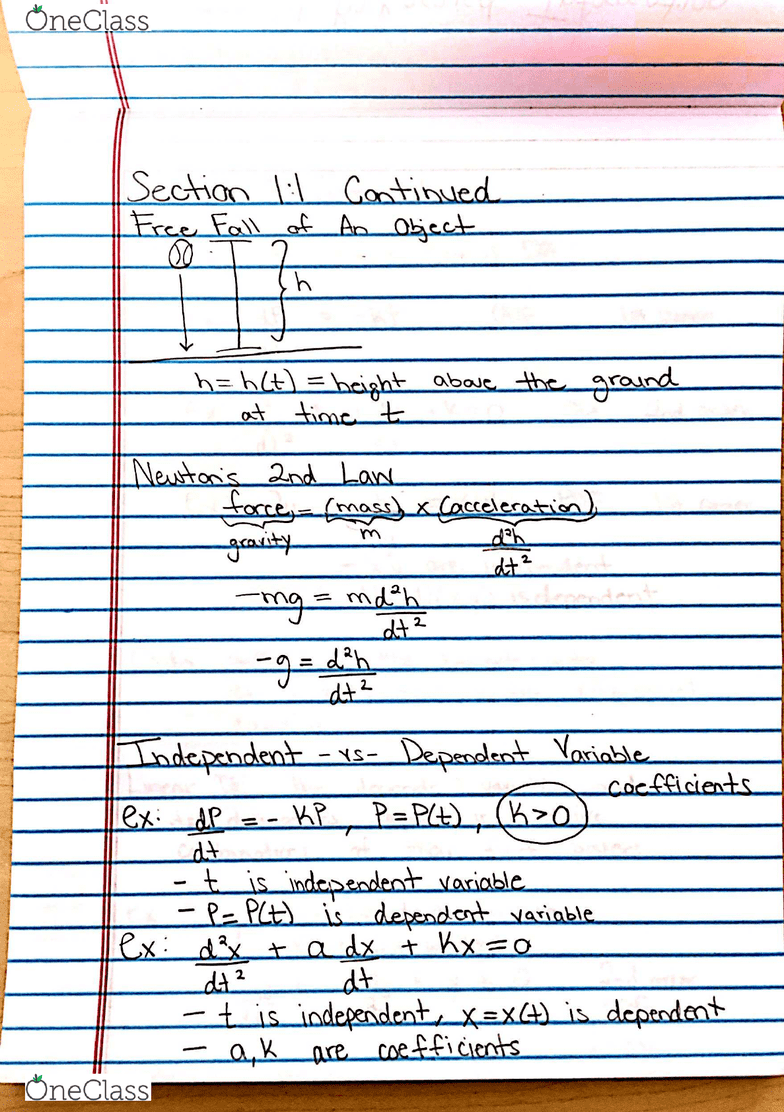 OneClass
Section 1:1 Continued
Free Fall of An Object
h
h = h(t) = height above the ground
at time t
Newton's 2nd Law
force = (mass) x (acceleration)
gravity m d²h/dt²
-mg = m d²h/dt²
-g = d²h/dt²
Independent -vs- Dependent Variable
coefficients
ex: dP/dt = - KP, P=P(t), K>0
- t is independent variable
- P=P(t) is dependent variable
ex: d²x/dt² + a dx/dt + Kx = 0
- t is independent, x=x(t) is dependent
- a, K are coefficients
OneClass